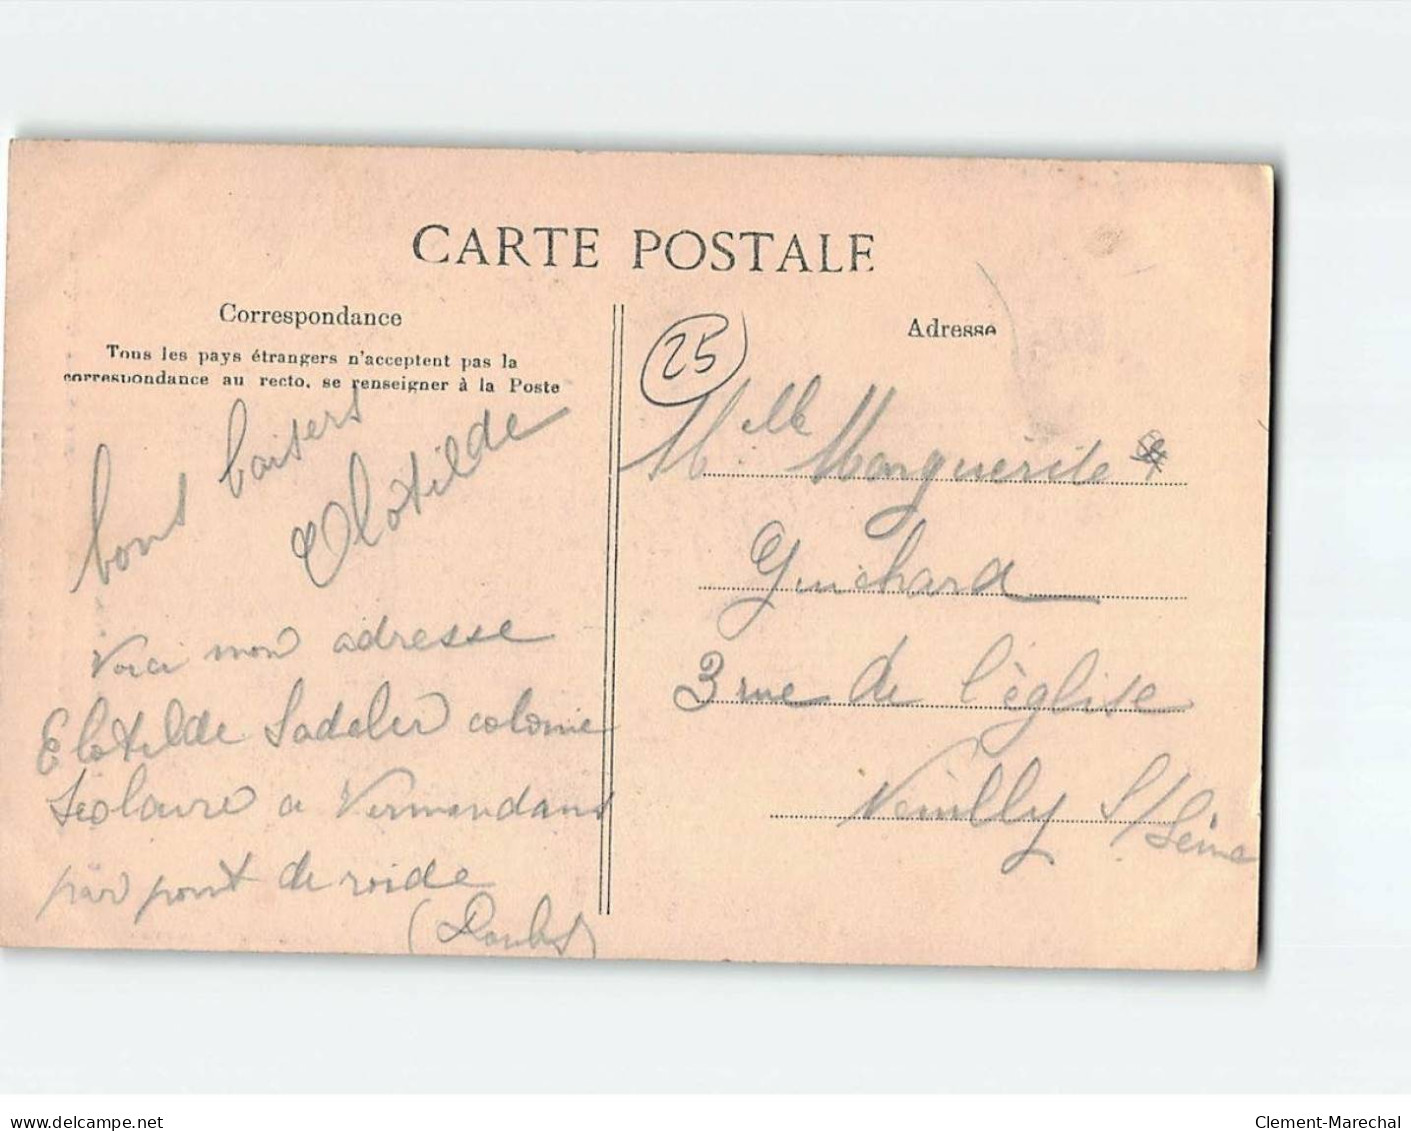 CARTE POSTALE
Correspondance
Tous les pays étrangers n'acceptent pas la
correspondance au recto, se renseigner à la Poste
bons baisers
Clotilde
Voici mon adresse
Clotilde Sadeler colonie
Scolaire a Vermondans
par pont de roide
(Doubs)
Adresse
25
Melle Marguerite
Guichard
3 rue de l'èglise
Neuilly S/Seine
delcampe.net
Clement-Marechal